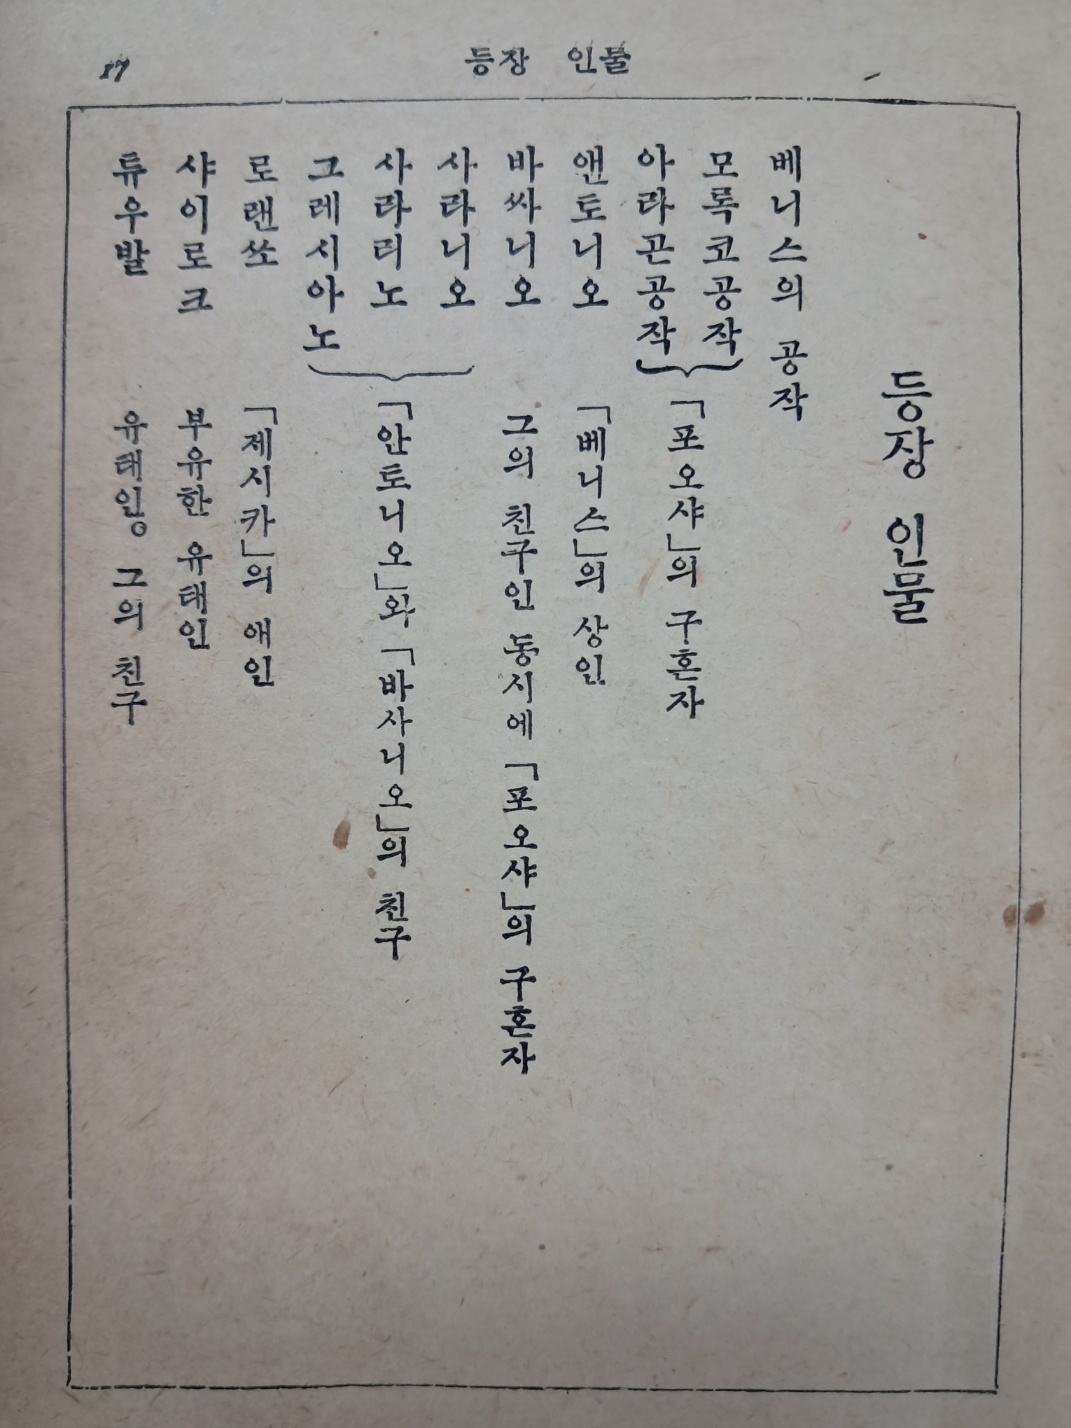 17
등장 인물
등장 인물
베니스의 공작
모록코공작
아라곤공작
「포오샤」의 구혼자
앤토니오 「베니스」의 상인
바싸니오 그의 친구인 동시에 「포오샤」의 구혼자
사라니오
사라리노
그레시아노
「안토니오」와 「바사니오」의 친구
로랜쏘 「제시카」의 애인
샤이로크 부유한 유태인
튜우발 유태인。 그의 친구